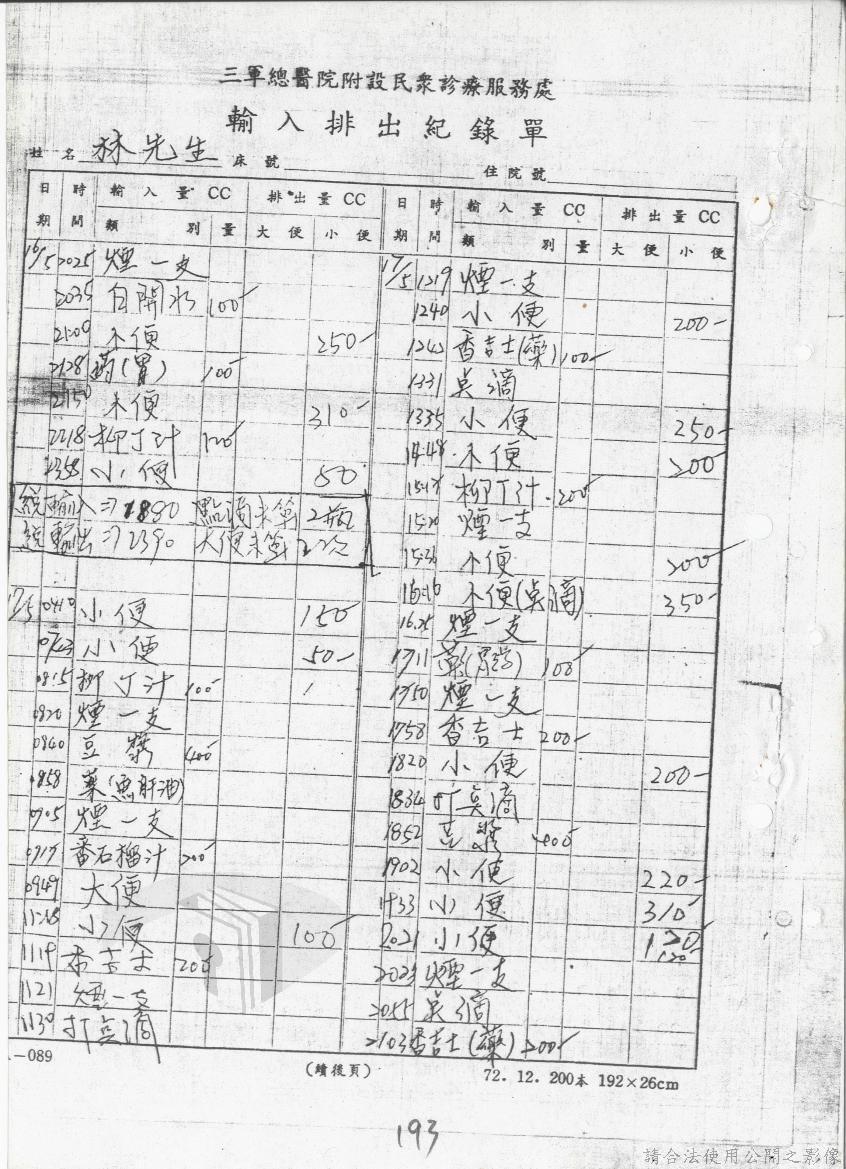 三軍總醫院附設民眾診療服務處
輸入排出紀錄單
姓名 林先生 床號 住院號
日期 時間 輸入量CC 類別 量 排出量CC 大便 小便
16/5 2025 煙一支
2035 白開水 100
2100 小便 250
2128 葯(胃) 100
2150 小便 310
2218 柳丁汁 100
2358 小便 50
總輸入⇒1880 點滴未算 2瓶
總輸出⇒2390 大便未算 2次
17/5 0410 小便 150
0743 小便 50
0815 柳丁汁 100
0820 煙一支
0840 豆漿 400
0858 藥(魚肝油)
0905 煙一支
0917 番石榴汁 200
0949 大便
1118 小便 100
1119 香吉士 200
1121 煙一支
1130 打点滴
日期 時間 輸入量CC 類別 量 排出量CC 大便 小便
17/5 1219 煙一支
1240 小便 200
1242 香吉士(藥) 100
1331 点滴
1335 小便 250
1448 小便 200
1517 柳丁汁 200
1520 煙一支
1536 小便 200
1610 小便(点滴) 350
1625 煙一支
1711 藥(胃葯) 100
1750 煙一支
1758 香吉士 200
1820 小便 200
1834 打点滴
1852 豆漿 400
1902 小便 220
1933 小便 310
2021 小便 120
120
2023 煙一支
2055 点滴
2103 香吉士(藥) 200
-089
(續後頁)
72.12.200本 192×26cm
193
請合法使用公開之影像